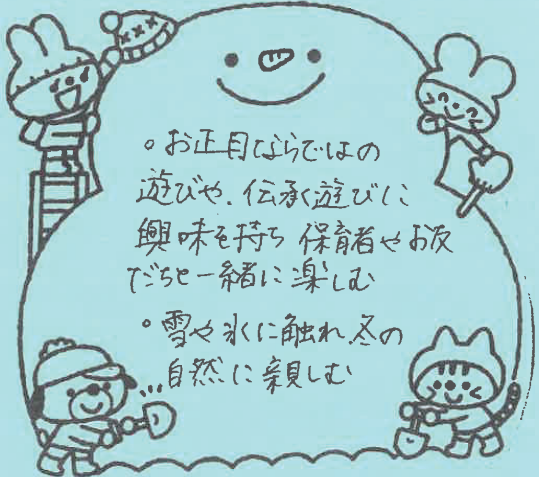 。お正月ならではの
遊びや、伝承遊びに
興味を持ち 保育者やお友
だちと一緒に楽しむ
。雪や氷に触れ、冬の
自然に親しむ